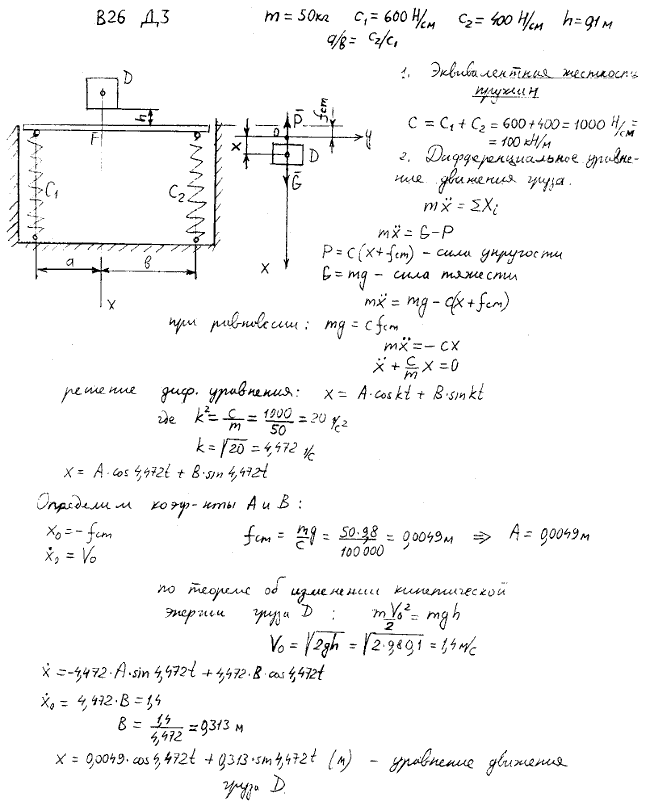 В26 Д3 m = 50кг C₁ = 600 Н/см C₂ = 400 Н/см h = 0,1 м
a/в = C₂/C₁
1. Эквивалентная жесткость
пружин
C = C₁ + C₂ = 600 + 400 = 1000 Н/см =
= 100 кН/м
2. Дифференциальное уравне-
ние движения груза.
mẍ = ΣXᵢ
mẍ = G - P
P = c(x + fст) - сила упругости
G = mg - сила тяжести
mẍ = mg - c(x + fст)
D
h
F
C₁
C₂
a
в
x
P̄
fст
0
y
x
D
Ḡ
x
при равновесии: mg = c fст
mẍ = - cx
ẍ + c/m x = 0
решение диф. уравнения: x = A·cos kt + B·sin kt
где k² = c/m = 1000/50 = 20 1/с²
k = √20 = 4,472 1/с
x = A·cos 4,472t + B·sin 4,472t
Определим коэф-нты A и B:
x₀ = - fст fст = mg/c = 50·9,8/100 000 = 0,0049 м ⇒ A = 0,0049 м
ẋ₀ = V₀
по теореме об изменении кинетической
энергии груза D: mV₀²/2 = mgh
V₀ = √2gh = √2·9,8·0,1 = 1,4 м/с
ẋ = -4,472·A·sin 4,472t + 4,472·B·cos 4,472t
ẋ₀ = 4,472·B = 1,4
B = 1,4/4,472 = 0,313 м
x = 0,0049·cos 4,472t + 0,313·sin 4,472t (м) - уравнение движения
груза D.